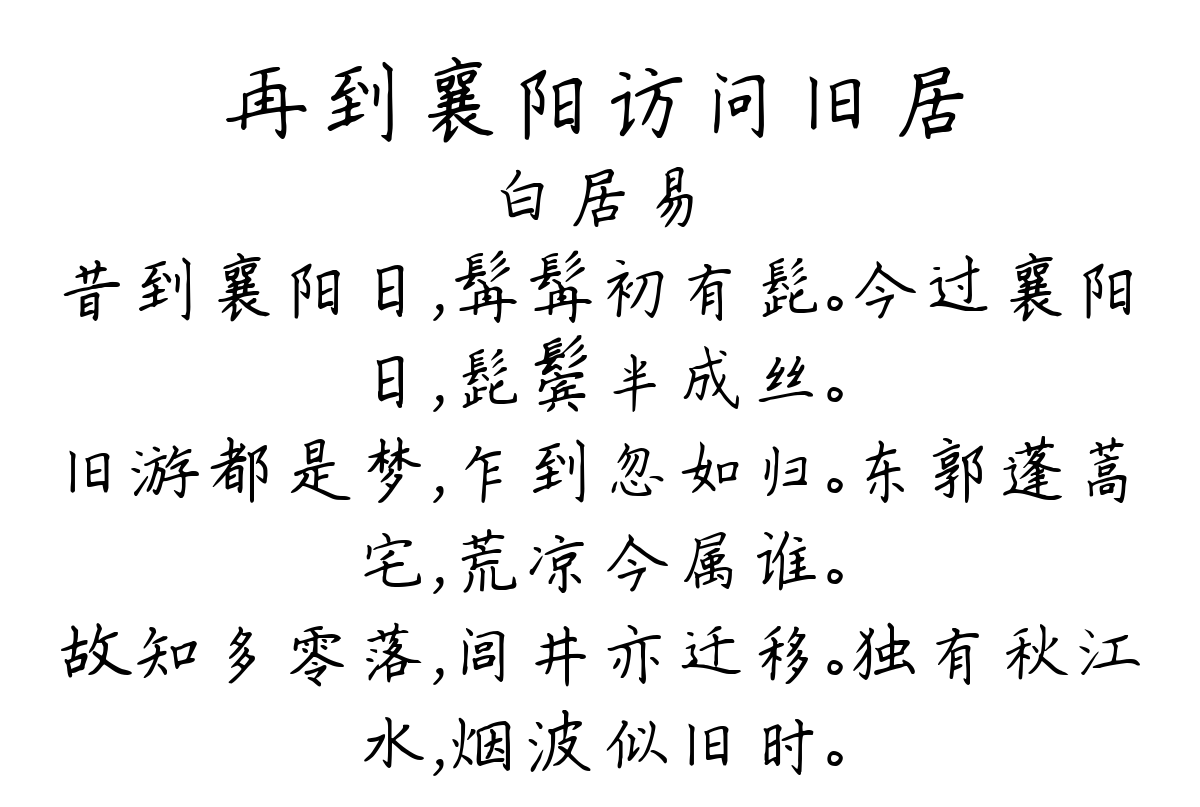 再到襄阳访问旧居
白居易
昔到襄阳日,髯髯初有髭。今过襄阳
日,髭鬓半成丝。
旧游都是梦,乍到忽如归。东郭蓬蒿
宅,荒凉今属谁。
故知多零落,闾井亦迁移。独有秋江
水,烟波似旧时。